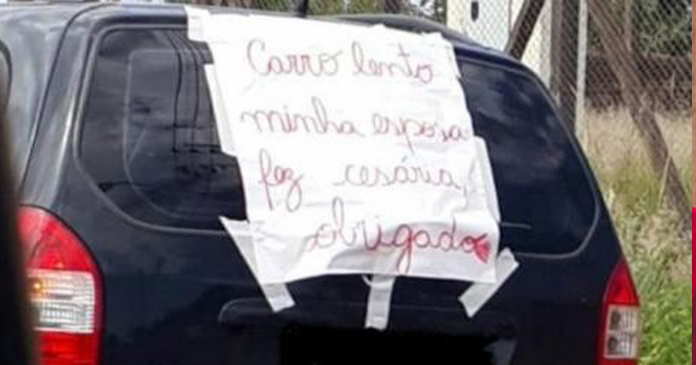 Carro lento
minha esposa
fez cesária,
obrigado